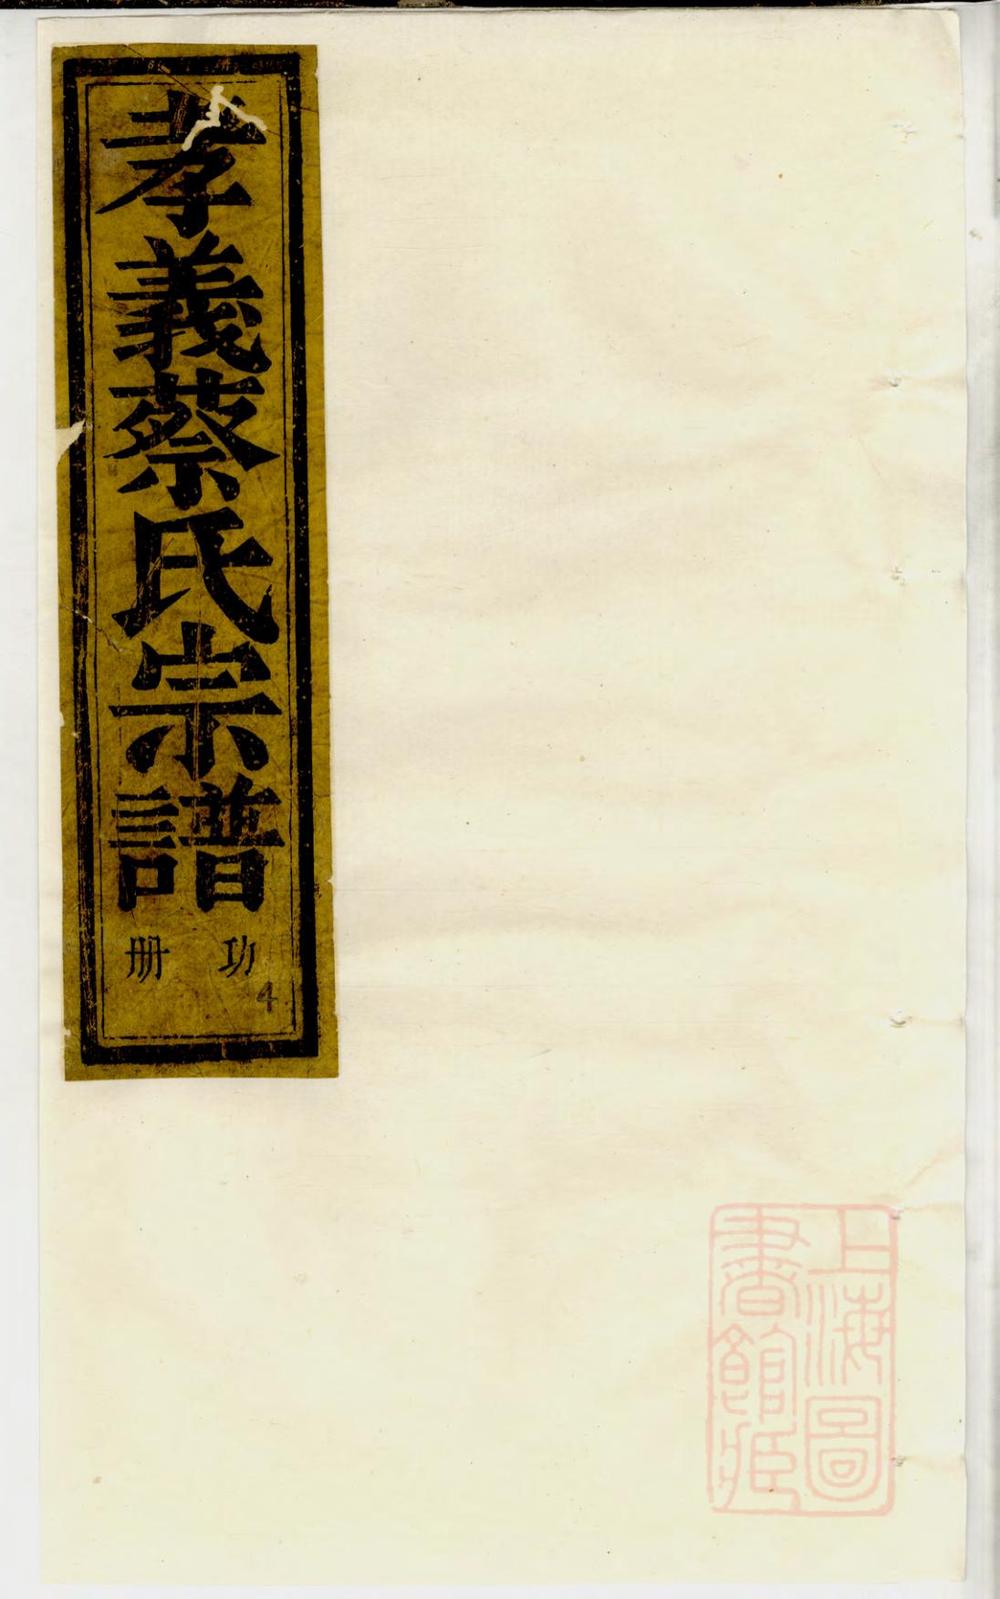 孝義蔡氏宗譜
功册
4
上海圖
書館藏